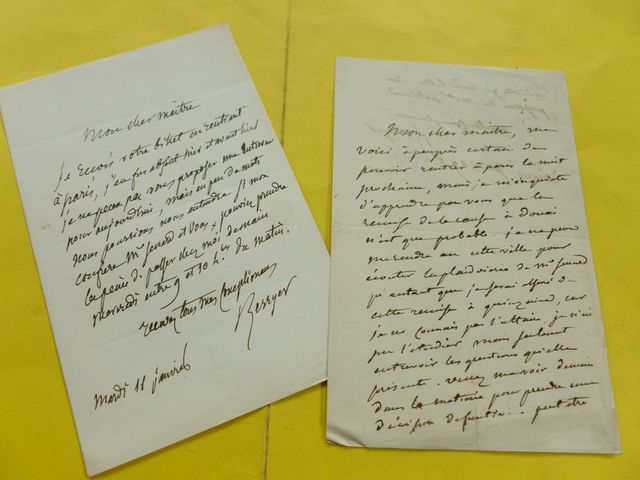 Mon cher maître
Je reçois votre billet en rentrant
à paris, j'en fus absent hier et avant hier
je ne peux pas vous proposer une
pour aujourdhui, mais en peu de mots
nous pourrions nous entendre si mon
confrère Mr et vous pouviez prendre
la peine de passer chez moi demain
mercredi entre 9 et 10 h. du matin.
tous mes
Berryer
Mardi 11 janvier
Mon cher maître, me
voici à peu près certain de
pouvoir rentrer à paris la nuit
prochaine, aussi, je
d'apprendre par vous que la
remise de la cause à Douai
n'est que probable. je ne peux
me rendre en cette ville pour
écouter la plaidoirie de Mr
qu'autant que j'aurai
cette remise à quinzaine, car
je ne connais pas l'affaire, je n'ai
pu l'étudier mais seulement
entrevoir les questions qu'elle
présente. venez me voir demain
dans la matinée pour prendre une
décision définitive. peut être